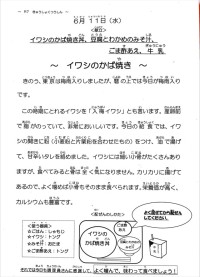 6月11日(水)
イワシのかば焼き丼、豆腐とわかめのみそ汁、
ごま酢あえ、牛乳
~ イワシのかば焼き ~
きのう、東京は梅雨入りしましたが、暦の上では今日が梅雨入り
です。
この時期にとれるイワシを「入梅イワシ」とも言います。産卵前
で脂がのっていて、非常においしいです。今日の給食では、イワ
シの開きに粉(小麦粉と片栗粉を合わせたもの)をつけ、油で揚げ
て、甘辛いタレを絡めました。イワシには細い小骨がたくさんあり
ますが、食べてみると骨は全く気になりません。カリカリに揚げて
あるので、よく噛めば小骨もそのまま食べられます。栄養価が高く、
カルシウムも豊富です。
<使う食器>
★ごはん:しゃもじ
★イワシ:トング
★みそ汁:おたま
★ごま酢あえ:トング
<配ぜんのしかた>
イワシの
かば焼き丼
ごま酢
あえ
みそ汁
よく噛んで、味わって食べましょう!